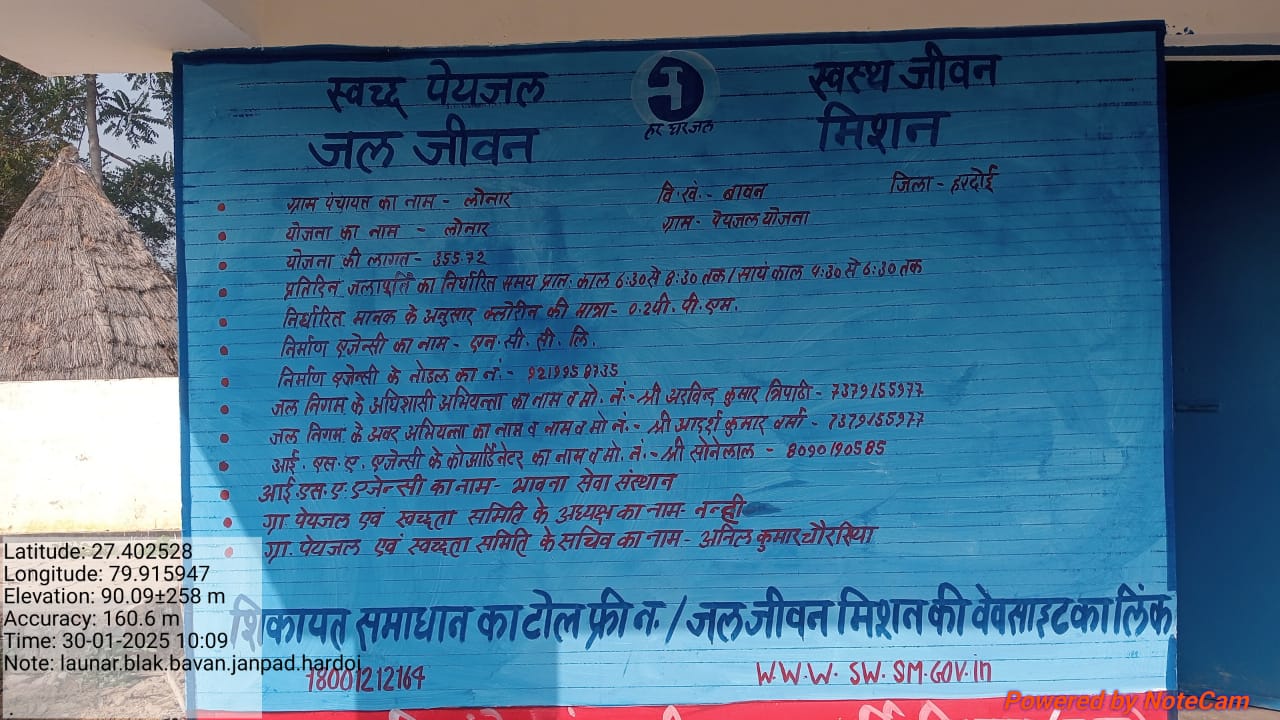 स्वच्छ पेयजल
स्वस्थ जीवन
जल जीवन
मिशन
हर घर जल
ग्राम पंचायत का नाम - लोनार वि.खं.- बावन जिला - हरदोई
योजना का नाम - लोनार ग्राम- पेयजल योजना
योजना की लागत- 355.72
प्रतिदिन जलापूर्ति का निर्धारित समय प्रात: काल 6:30 से 8:30 तक / सायं काल 4:30 से 6:30 तक
निर्धारित मानक के अनुसार क्लोरीन की मात्रा- 0.2 पी. पी. एम.
निर्माण एजेन्सी का नाम - एन. सी. सी. लि.
निर्माण एजेन्सी के नोडल का नं.- 9219958735
जल निगम के अधिशासी अभियन्ता का नाम व मो. नं.- श्री अरविन्द कुमार त्रिपाठी - 7379155977
जल निगम के अवर अभियन्ता का नाम व नाम व मो नं.- श्री आदर्श कुमार वर्मा - 7379155977
आई. एस. ए. एजेन्सी के कोआर्डिनेटर का नाम व मो. नं.- श्री सोनेलाल - 8090190585
आई.एस.ए. एजेन्सी का नाम- भावना सेवा संस्थान
ग्रा. पेयजल एवं स्वच्छता समिति के अध्यक्ष का नाम- नन्ही
ग्रा. पेयजल एवं स्वच्छता समिति के सचिव का नाम - अनिल कुमार चौरसिया
शिकायत समाधान का टोल फ्री न. / जल जीवन मिशन की वेबसाइट का लिंक
18001212164 W.W.W. SW. SM.GOV.in
Latitude: 27.402528
Longitude: 79.915947
Elevation: 90.09±258 m
Accuracy: 160.6 m
Time: 30-01-2025 10:09
Note: launar.blak.bavan.janpad.hardoi
Powered by NoteCam